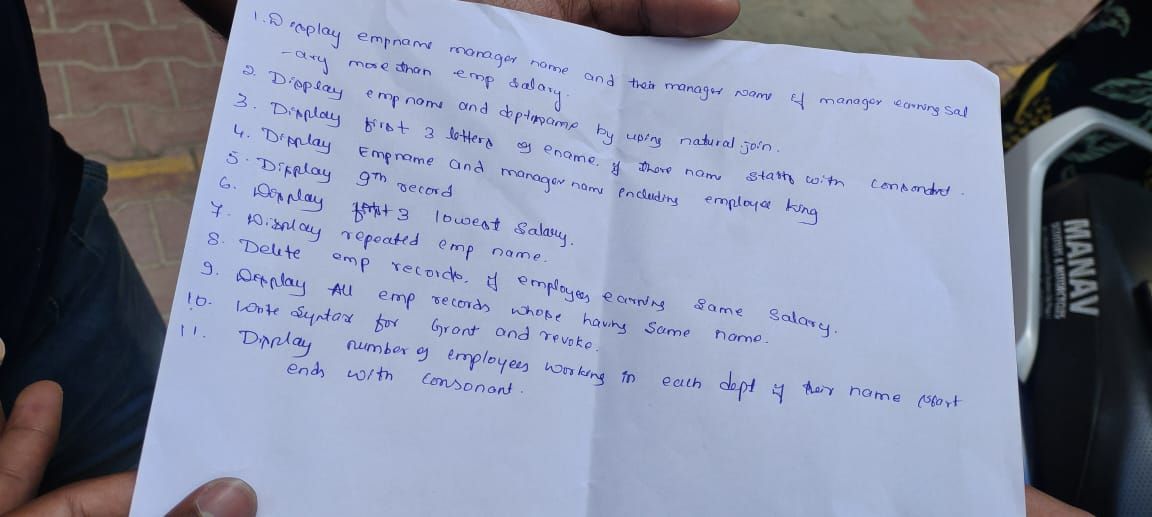 1. Display empname manager name and their manager name if manager earning sal
-ary more than emp salary.
2. Display empname and deptname by using natural join.
3. Display first 3 letters of ename. if there name starts with consonant.
4. Display Empname and manager name encluding employee king
5. Display 9th record
6. Display first 3 lowest Salary.
7. Display repeated emp name.
8. Delete emp records. if employees earning same salary.
9. Display All emp records whose having same name.
10. Write Syntax for Grant and revoke.
11. Display number of employees working in each dept if their name (start
ends with consonant.
MANAV